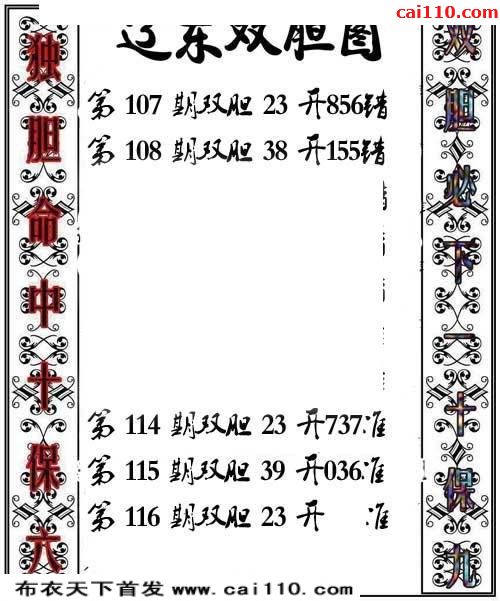 cai110.com
辽东双胆图
独胆命中十保六
双胆必下一十保九
第 107 期双胆 23 开856错
第 108 期双胆 38 开155错
第 114 期双胆 23 开737准
第 115 期双胆 39 开036准
第 116 期双胆 23 开 准
布衣天下首发 www.cai110.com